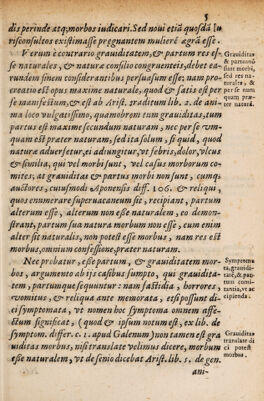 5
dis perinde atq; morbos iudicari. Sed noui etiã quosdã Iu
risconsultos existimasse pregnantem mulierẽ ægrã esse.
Verum è contrario grauiditatem, & partum res es-
se naturales, & naturæ consilio congruenteis, debet ea-
rundem sinem considerantibus persuasum esse; nam procrea
ratio est opus maxime naturale, quod & satis est per
se manifestum, & est ab Arist. traditum lib. 2. de ani-
ma loco vulgatissimo, quamobrem tum grauiditas, tum
partus est maxime secundum naturam, nec per se vm-
quam est præter naturam, sed ita solum, si quid, quod
naturæ aduersetur, ei adiungitur, vt febris, dolor, vlcus
& similia, qui vel morbi sunt, vel casus morborum co-
mites, at grauiditas & partus morbi non sunt, cumq;
auctores, cuiusmodi Aponensis diff. 106. & reliqui,
quos enumerare superuacaneum sit, recipiant, partum
alterum esse, alterum non esse naturalem, eo demon-
strant, partum sua natura morbum non esse, cum enim
alter sit naturalis, non potest esse morbus, nam res est
morbus, omnium confessione, præter naturam.
Nec probatur, esse partum, & grauiditatem mor-
bos, argumento ab ijs casibus sumpto, qui grauidita-
tem, partumque sequuntur: nam fastidia, horrores,
vomitus, & reliqua ante memorata, etsi possunt di-
ci symptomata, vt nomen hoc symptoma omnem affe-
ctum significat, (quod & ipsum notum est, ex lib. de
symptom. differ. c. 1. apud Galenum) non tamen est gra
uiditas morbus, nisi translate velimus dicere, morbum
esse naturalem, vt de senio dicebat Arist. lib. 5. de gen.
ani-
Grauiditas
& partus nõ
sunt morbi,
sed res na-
turales, &
per se num
quam præ-
ter naturã.
Symptoma
ta, grauidi-
tatẽ, & par-
tum comi-
tantia, vt ac
cipienda.
Grauiditas
translate di
ci potest
morbus.